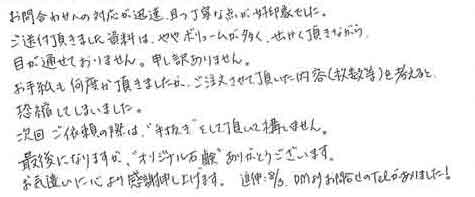 お問合わせへの対応が迅速、且つ丁寧な点が好印象でした。
ご送付頂きました資料は、ややボリュームが多く、せっかく頂きながら
目が通せておりません。申し訳ありません。
お手紙も何度か頂きましたが、ご注文させて頂いた内容(枚数等)を考えると、
恐縮してしまいました。
次回ご依頼の際は、"手抜き"をして頂いて構いません。
最後になりますが、"オリジナル石鹸"ありがとうございます。
お気遣いに心より感謝申し上げます。 追伸:8/3. DMよりお問合せのTelがありました!